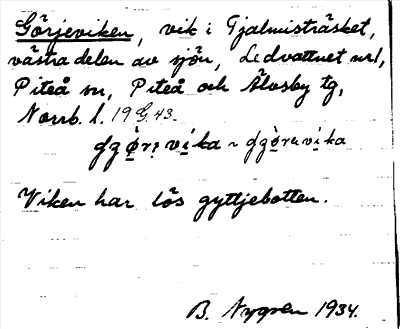 Görjeviken, vik i Tjalmisträsket,
västra delen av sjön, Ledvattnet nr 1,
Piteå sn, Piteå och Älvsby tg,
Norrb. l. 19 G. 43.
vika ~ vika
Viken har lös gyttjebotten.
B. Nygren 1934.